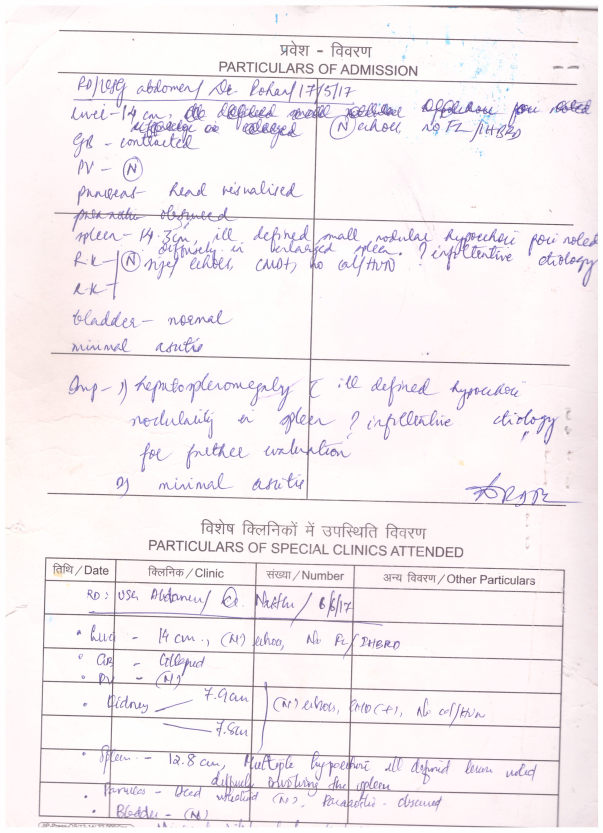 प्रवेश - विवरण
PARTICULARS OF ADMISSION
RD/USG abdomen/ Dr. Rohan/17/5/17
Liver - 14 cm, (N) echoes no FL/IHBRD
GB - contracted
PV - (N)
pancreas - head visualised
spleen - 14.3cm, ill defined small nodular hypoechoic foci noted
diffusely in enlarged spleen. ? infiltrative etiology
RK
(N) size/ echoes, CMD+, no cal/HUN
LK
bladder - normal
minimal ascitis
Imp - 1) hepatosplenomegaly c ill defined hypoechoic
nodularity in spleen ? infiltrative etiology
for further evaluation
2) minimal ascitis
विशेष क्लिनिकों में उपस्थिति विवरण
PARTICULARS OF SPECIAL CLINICS ATTENDED
तिथि / Date क्लिनिक / Clinic संख्या / Number अन्य विवरण / Other Particulars
RD: USG Abdomen/ Dr. /6/17
• Liver - 14 cm., (N) echoes, No FL/IHBRD
• GB - Collapsed
• PV - (N)
• Kidney 7.9cm
(N) echoes, CMD (+), No cal/HUN
• Spleen - 12.8 cm, Multiple hypoechoic ill defined lesion noted
diffusely involving the spleen
• Pancreas - Head visualised (N), Paraaortic - obscured
• Bladder - (N)